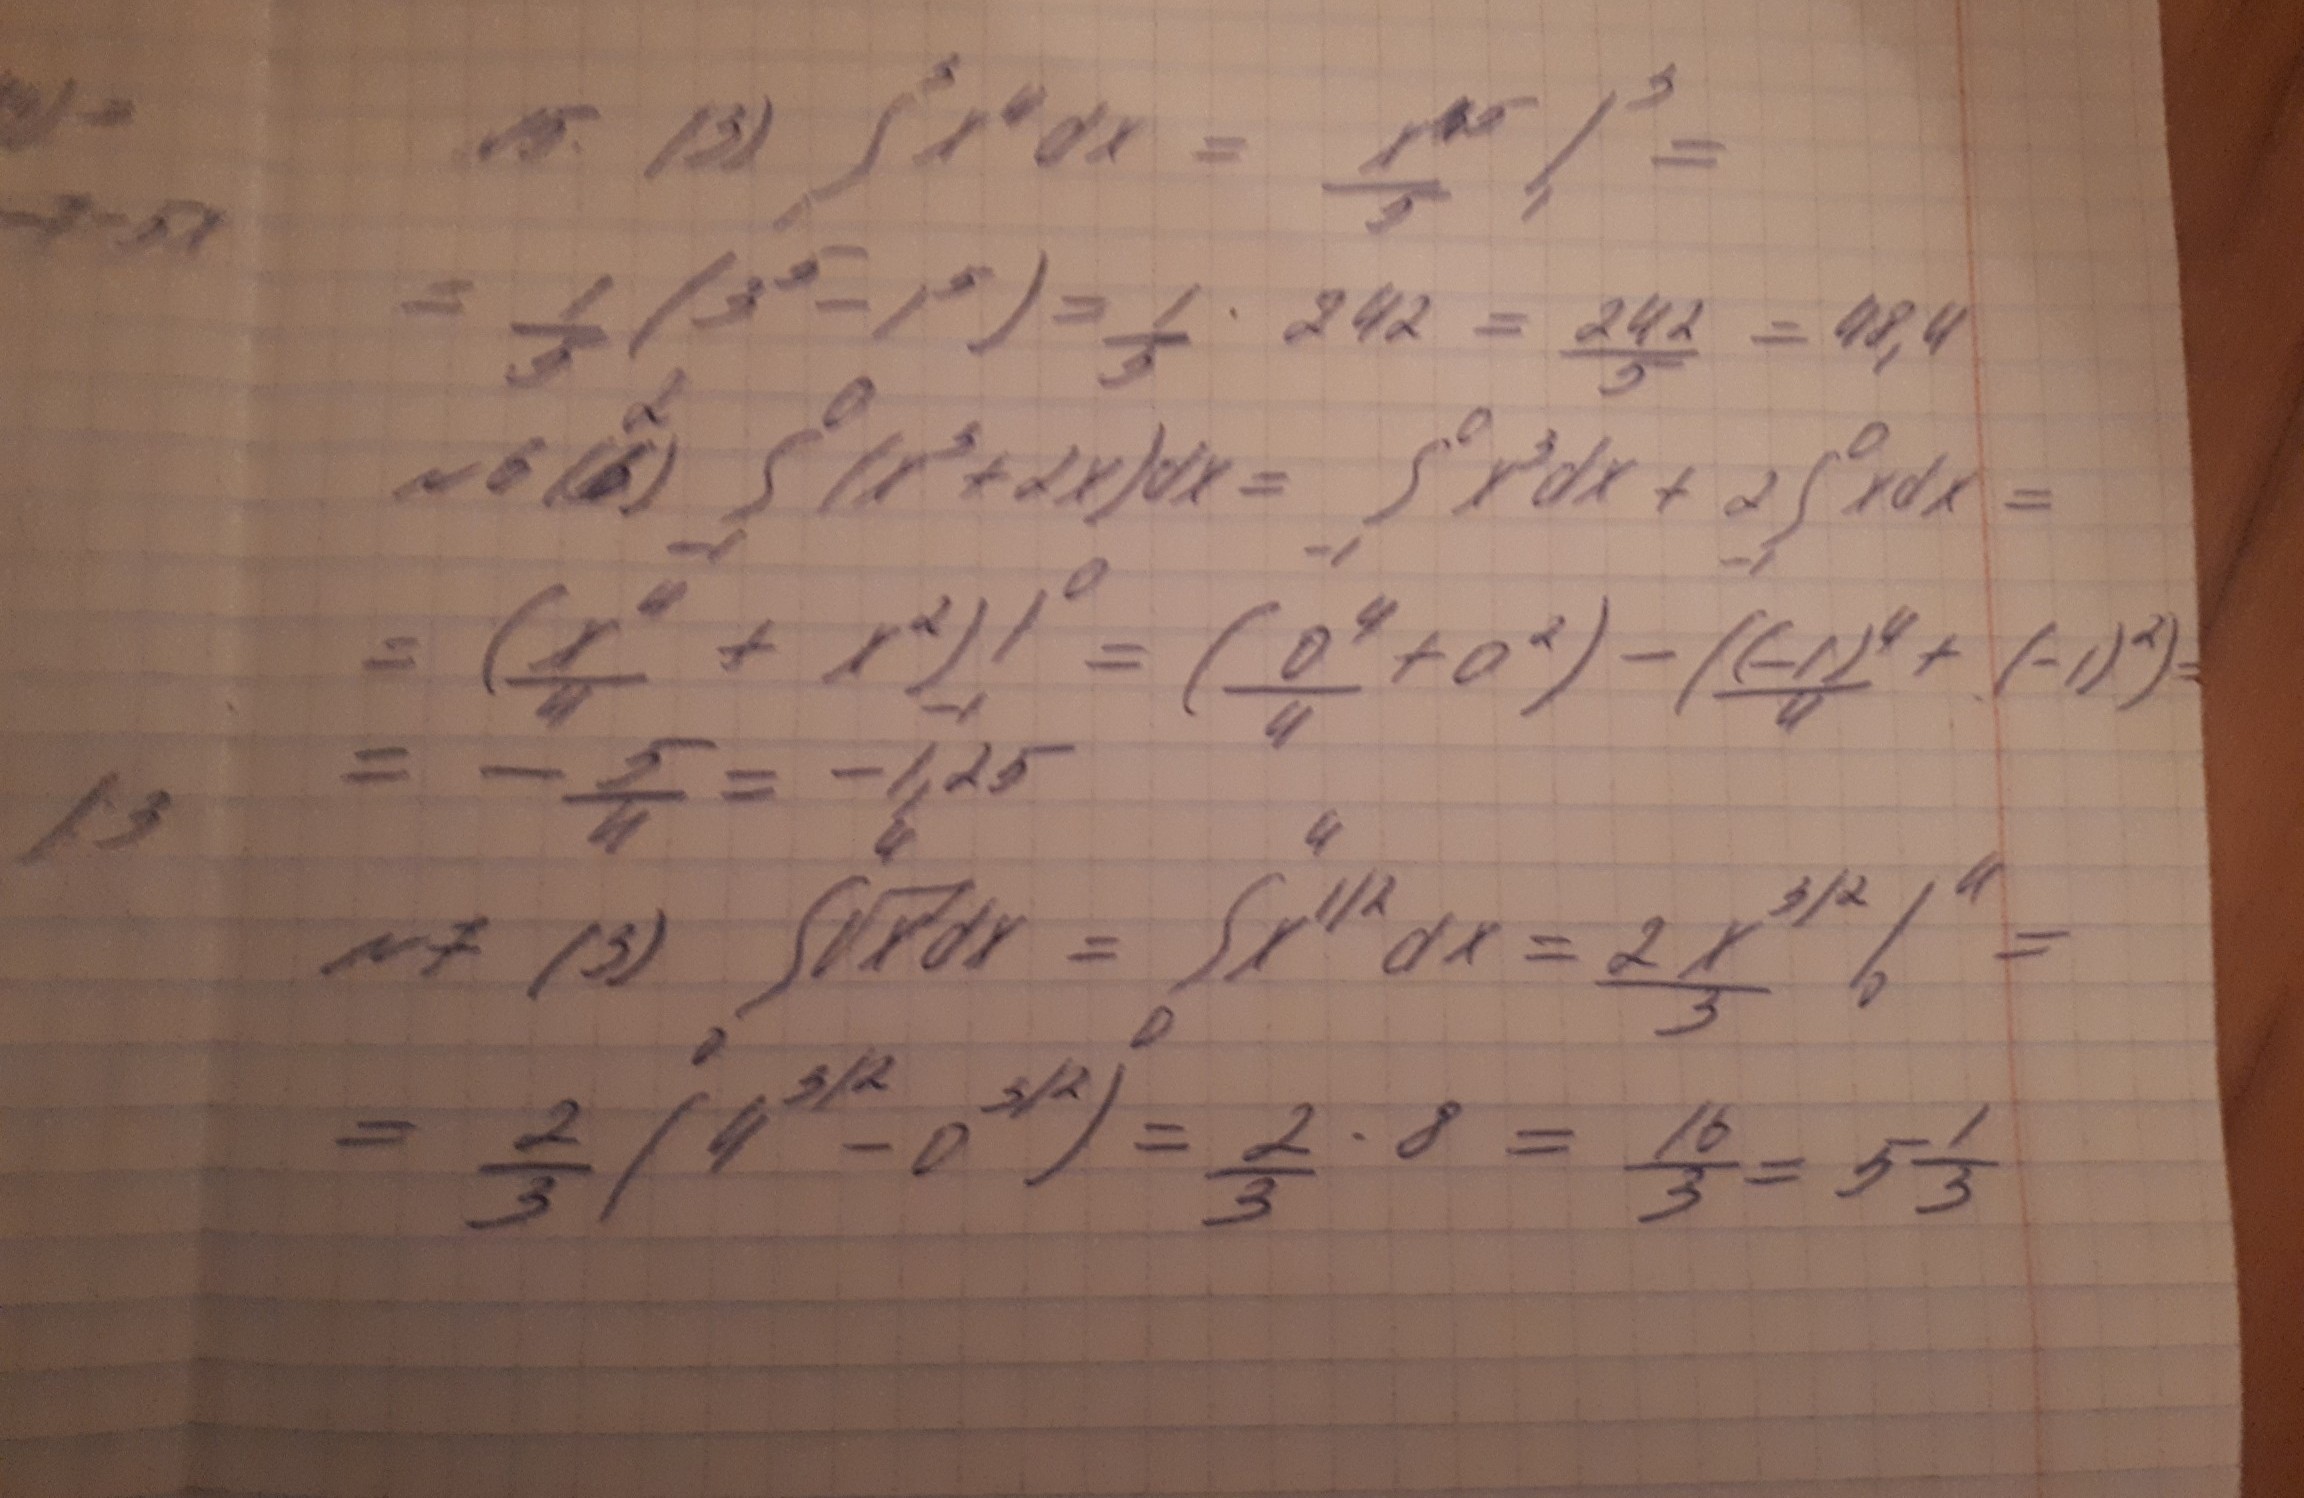 №5. (3) ∫₁³ x⁴ dx = x⁵/5 |₁³ =
= 1/5 (3⁵ - 1⁵) = 1/5 · 242 = 242/5 = 48,4
№6 (2) ∫₋₁⁰ (x³ + 2x) dx = ∫₋₁⁰ x³ dx + 2 ∫₋₁⁰ x dx =
= (x⁴/4 + x²) |₋₁⁰ = (0⁴/4 + 0²) - ((-1)⁴/4 + (-1)²) =
= - 5/4 = -1,25
№7 (3) ∫₀⁴ √x dx = ∫₀⁴ x^(1/2) dx = 2x^(3/2)/3 |₀⁴ =
= 2/3 (4^(3/2) - 0^(3/2)) = 2/3 · 8 = 16/3 = 5 1/3